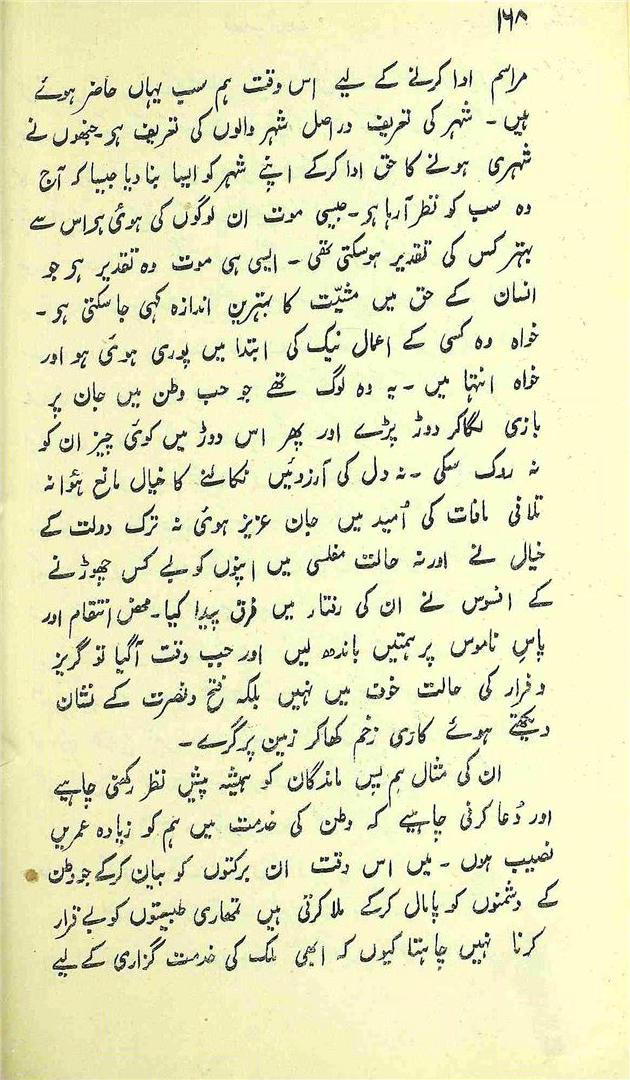 ۱۶۸
مراسم ادا کرنے کے لیے اس وقت ہم سب یہاں حاضر ہوئے
ہیں ۔ شہر کی تعریف دراصل شہر والوں کی تعریف ہی۔جنھوں نے
شہری ہونے کا حق ادا کرکے اپنے شہر کو ایسا بنا دیا جیسا کہ آج
وہ سب کو نظر آرہا ہی۔جیسی موت ان لوگوں کی ہوئی ہی اس سے
بہتر کس کی تقدیر ہوسکتی تھی ۔ ایسی ہی موت وہ تقدیر ہی جو
انسان کے حق میں مشیّت کا بہترین اندازہ کہی جا سکتی ہی ۔
خواہ وہ کسی کے اعمال نیک کی ابتدا میں پوری ہوئی ہو اور
خواہ انتہا میں ۔ یہ وہ لوگ تھے جو حب وطن میں جان پر
بازی لگاکر دوڑ پڑے اور پھر اس دوڑ میں کوئی چیز ان کو
نہ روک سکی ۔ نہ دل کی آرزوئیں نکالنے کا خیال مانع ہؤا نہ
تلافی مافات کی اُمید میں جان عزیز ہوئی نہ ترک دولت کے
خیال نے اور نہ حالت مفلسی میں اپنوں کو بے کس چھوڑنے
کے افسوس نے ان کی رفتار میں فرق پیدا کیا۔محض انتقام اور
پاسِ ناموس پر ہمتیں باندھ لیں اور جب وقت آگیا تو گریز
و فرار کی حالت خوف میں نہیں بلکہ فتح و نصرت کے نشان
دیکھتے ہوئے کاری زخم کھاکر زمین پر گرے ۔
ان کی مثال ہم پس ماندگان کو ہمیشہ پیش نظر رکھنی چاہیے
اور دُعا کرنی چاہیے کہ وطن کی خدمت میں ہم کو زیادہ عمریں
نصیب ہوں ۔ میں اس وقت ان برکتوں کو بیان کرکے جو وطن
کے دشمنوں کو پامال کرکے ملا کرتی ہیں تمھاری طبیعتوں کو بے قرار
کرنا نہیں چاہتا کیوں کہ ابھی ملک کی خدمت گزاری کے لیے